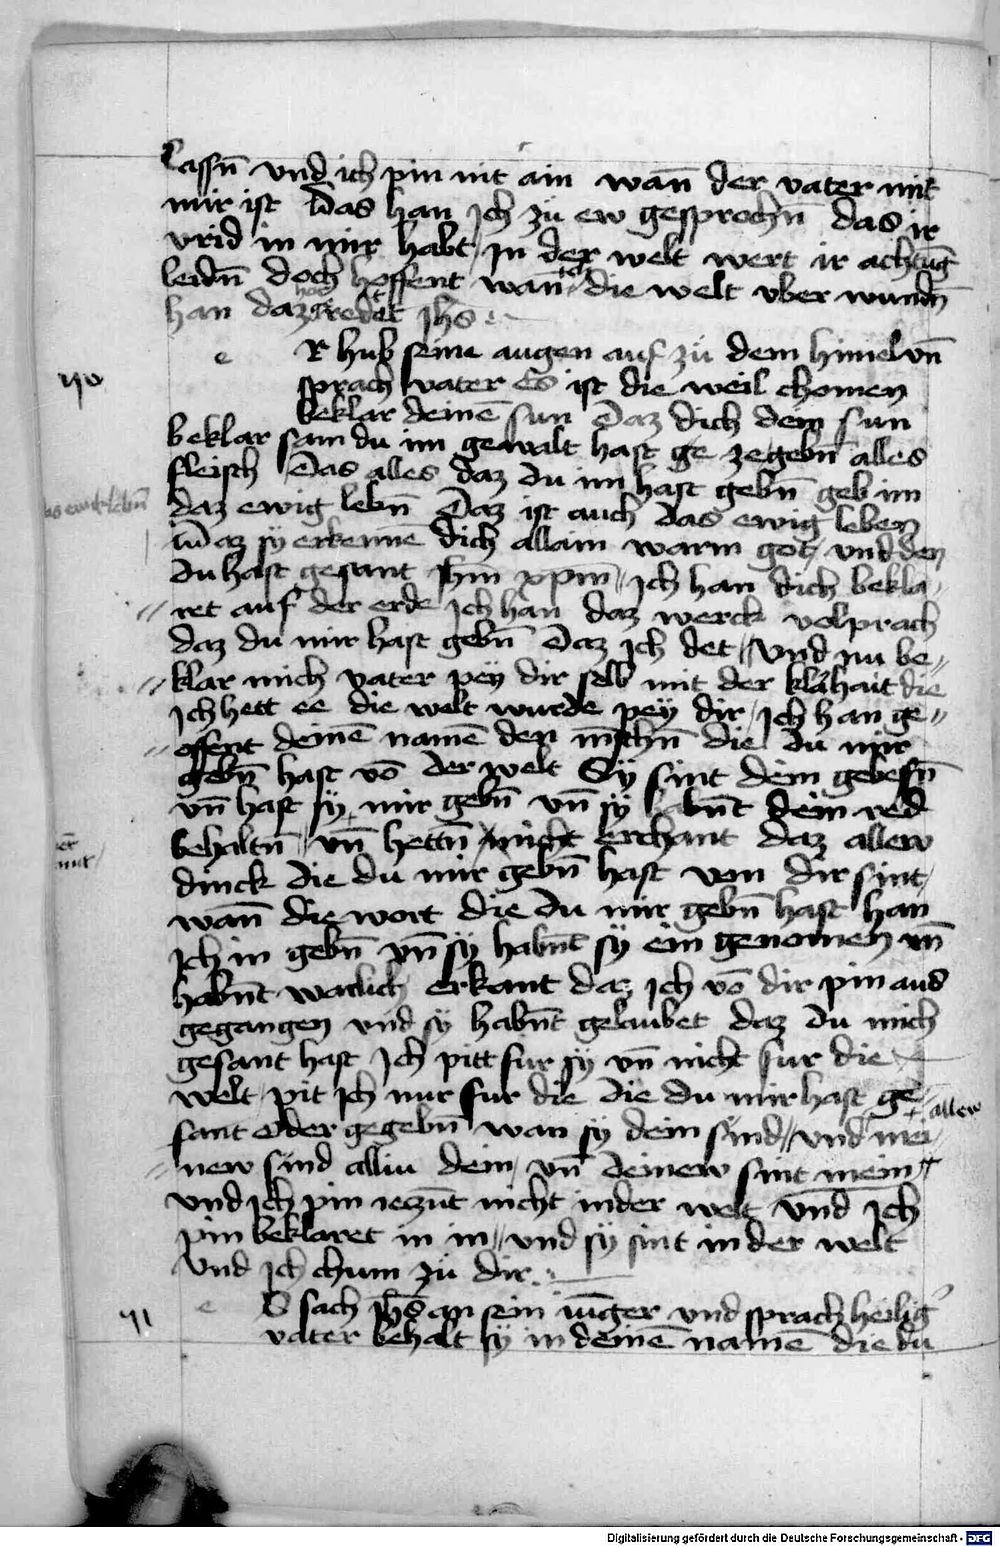 lassn̄ vnd ich pin nit ain wan̄ der vater mit
mir ist Das han Ich zu ew gesprochn̄ das ir
vrid in mir habt In der welt wert ir achtūg
leidn̄ doch hoffent wan̄ ich die welt vber wundn̄
han daz redet Jhs̄
e R hub seine augen auf zu dem himel vn̄
sprach vater Es ist die weil chomen
beklar deinē sun Daz dich dein sun
beklar sam du im gewalt hast ge zegebn̄ alles
fleisch Das alles daz du im hast gebn̄ geb im
daz ewig lebn̄ Daz ist auch das ewig leben
Daz sy erkennē dich allain warm got vnd den
du hast gesant Jhm̄ xpm̄ // Ich han dich bekla
// ret auf der erde Ich han daz werck volprach
daz du mir hast gebn̄ Daz Ich det // Vnd nu be //
// klar mich vater pey dir selb mit der klahait die
Ich hett ee die welt wurde pey dir / Ich han ge //
// offent deinē namē den mēschn̄ die du mir
gebn̄ hast vō der welt Sy sint dein gebesn̄
vn̄ hast sy mir gebn̄ vn̄ sy habnt dein red
behaltn̄ // vn̄ hettn̄ nicht erchant daz allew
dinck die du mir gebn̄ hast von dir sint /
wan̄ die wort die du mir gebn̄ hast han
Ich in gebn̄ vn̄ sy habnt sy ein genomen vn̄
habnt warlich erkant daz Ich vō dir pin aus
gegangen vnd sy habnt gelaubet daz du mich
gesant hast Ich pitt fur sy vn̄ nicht fur die
welt / pit Ich nur fur die die du mir hast ge
sant oder gegebn̄ wan sy dein sind // vnd mei allew
// new sind alliu dein / vn̄ deinew sint mein //
vnd Ich pin iezūt nicht inder welt vnd Ich
pin beklaret in in // vnd sy sint in der welt
vnd Ich chum zu dir
e S sach Jhs̄ an sein iūger vnd sprach heilig
vater behalt sy in deinē namē die du
das ewik lebn̄
71
Digitalisierung gefördert durch die Deutsche Forschungsgemeinschaft - DFG